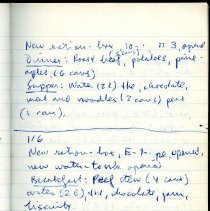 New ration-box, 10-, 3, opened
Dinner: Roast beef, potatoes, pine-
apples (6 cans)
Supper: Water (2 l) the, chocolate,
meat and noodles (2 cans) peas
(1 can),
1/6
New ration-box, E-7. pe, opened,
new water-tank opened
Breakfast: Beef stew (4 cans)
Water (2 l) the, chocolate, jam,
biscuits